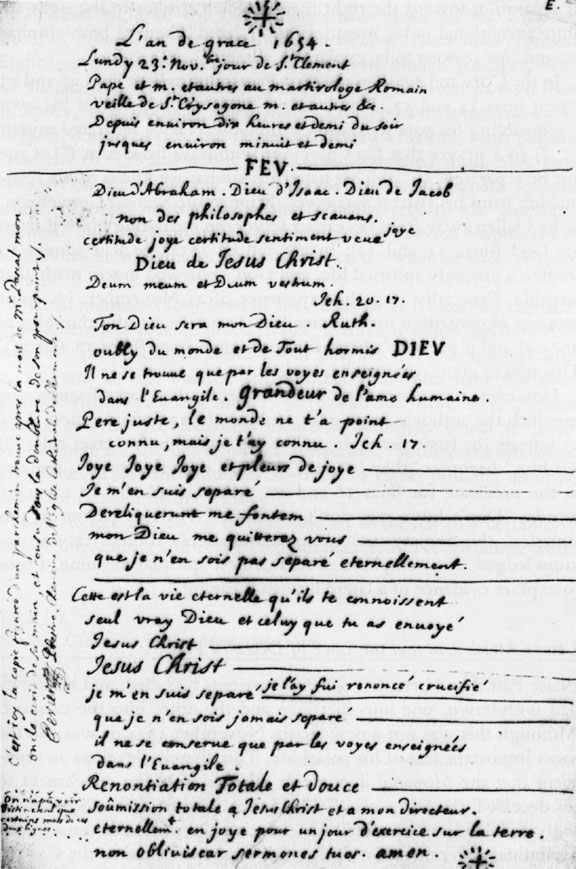 E.
L'an de grace 1654.
Lundy 23e. Novbre. jour de St. Clement
Pape et m. et autres au martirologe Romain
veille de St. Crysogone m. et autres &c.
Depuis environ dix heures et demi du soir
jusques environ minuit et demi
FEV.
Dieu d'Abraham. Dieu d'Isaac. Dieu de Jacob
non des philosophes et scavans.
certitude joye certitude sentiment veue joye
Dieu de Jesus Christ.
Deum meum et Deum vestrum.
Jeh. 20. 17.
Ton Dieu sera mon Dieu. Ruth.
oubly du monde et de Tout hormis DIEV
Il ne se trouve que par les voyes enseignées
dans l'Euangile. Grandeur de l'ame humaine.
Pere juste, le monde ne t'a point
connu, mais je t'ay connu. Jeh. 17.
Joye Joye Joye et pleurs de joye
Je m'en suis separé
Dereliquerunt me fontem
mon Dieu me quitterez vous
que je n'en sois pas separé eternellement
Cette est la vie eternelle qu'ils te connoissent
seul vray Dieu et celuy que tu as envoyé
Jesus Christ
Jesus Christ
je m'en suis separé je l'ay fui renoncé crucifié
que je n'en sois jamais separé
il ne se conserve que par les voyes enseignées
dans l'Euangile
Renontiation Totale et douce
soûmission totale a Jesus Christ et a mon directeur.
eternellemt. en joye pour un jour d'exercice sur la terre.
non obliviscar sermones tuos. amen.
On n'a pû voir
certains mots de ces
deux lignes.